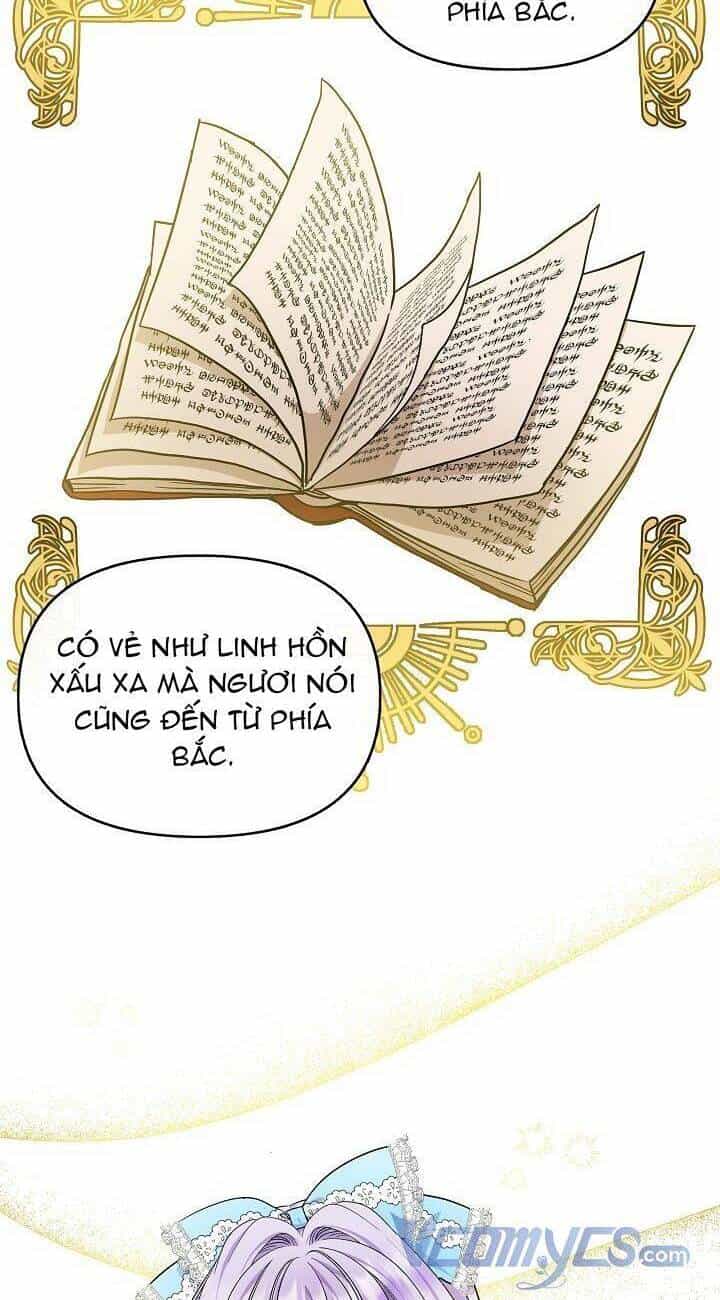 PHÍA BẮC.
CÓ VẺ NHƯ LINH HỒN
XẤU XA MÀ NGƯƠI NÓI
CŨNG ĐẾN TỪ PHÍA
BẮC.
VCOMYCS.com